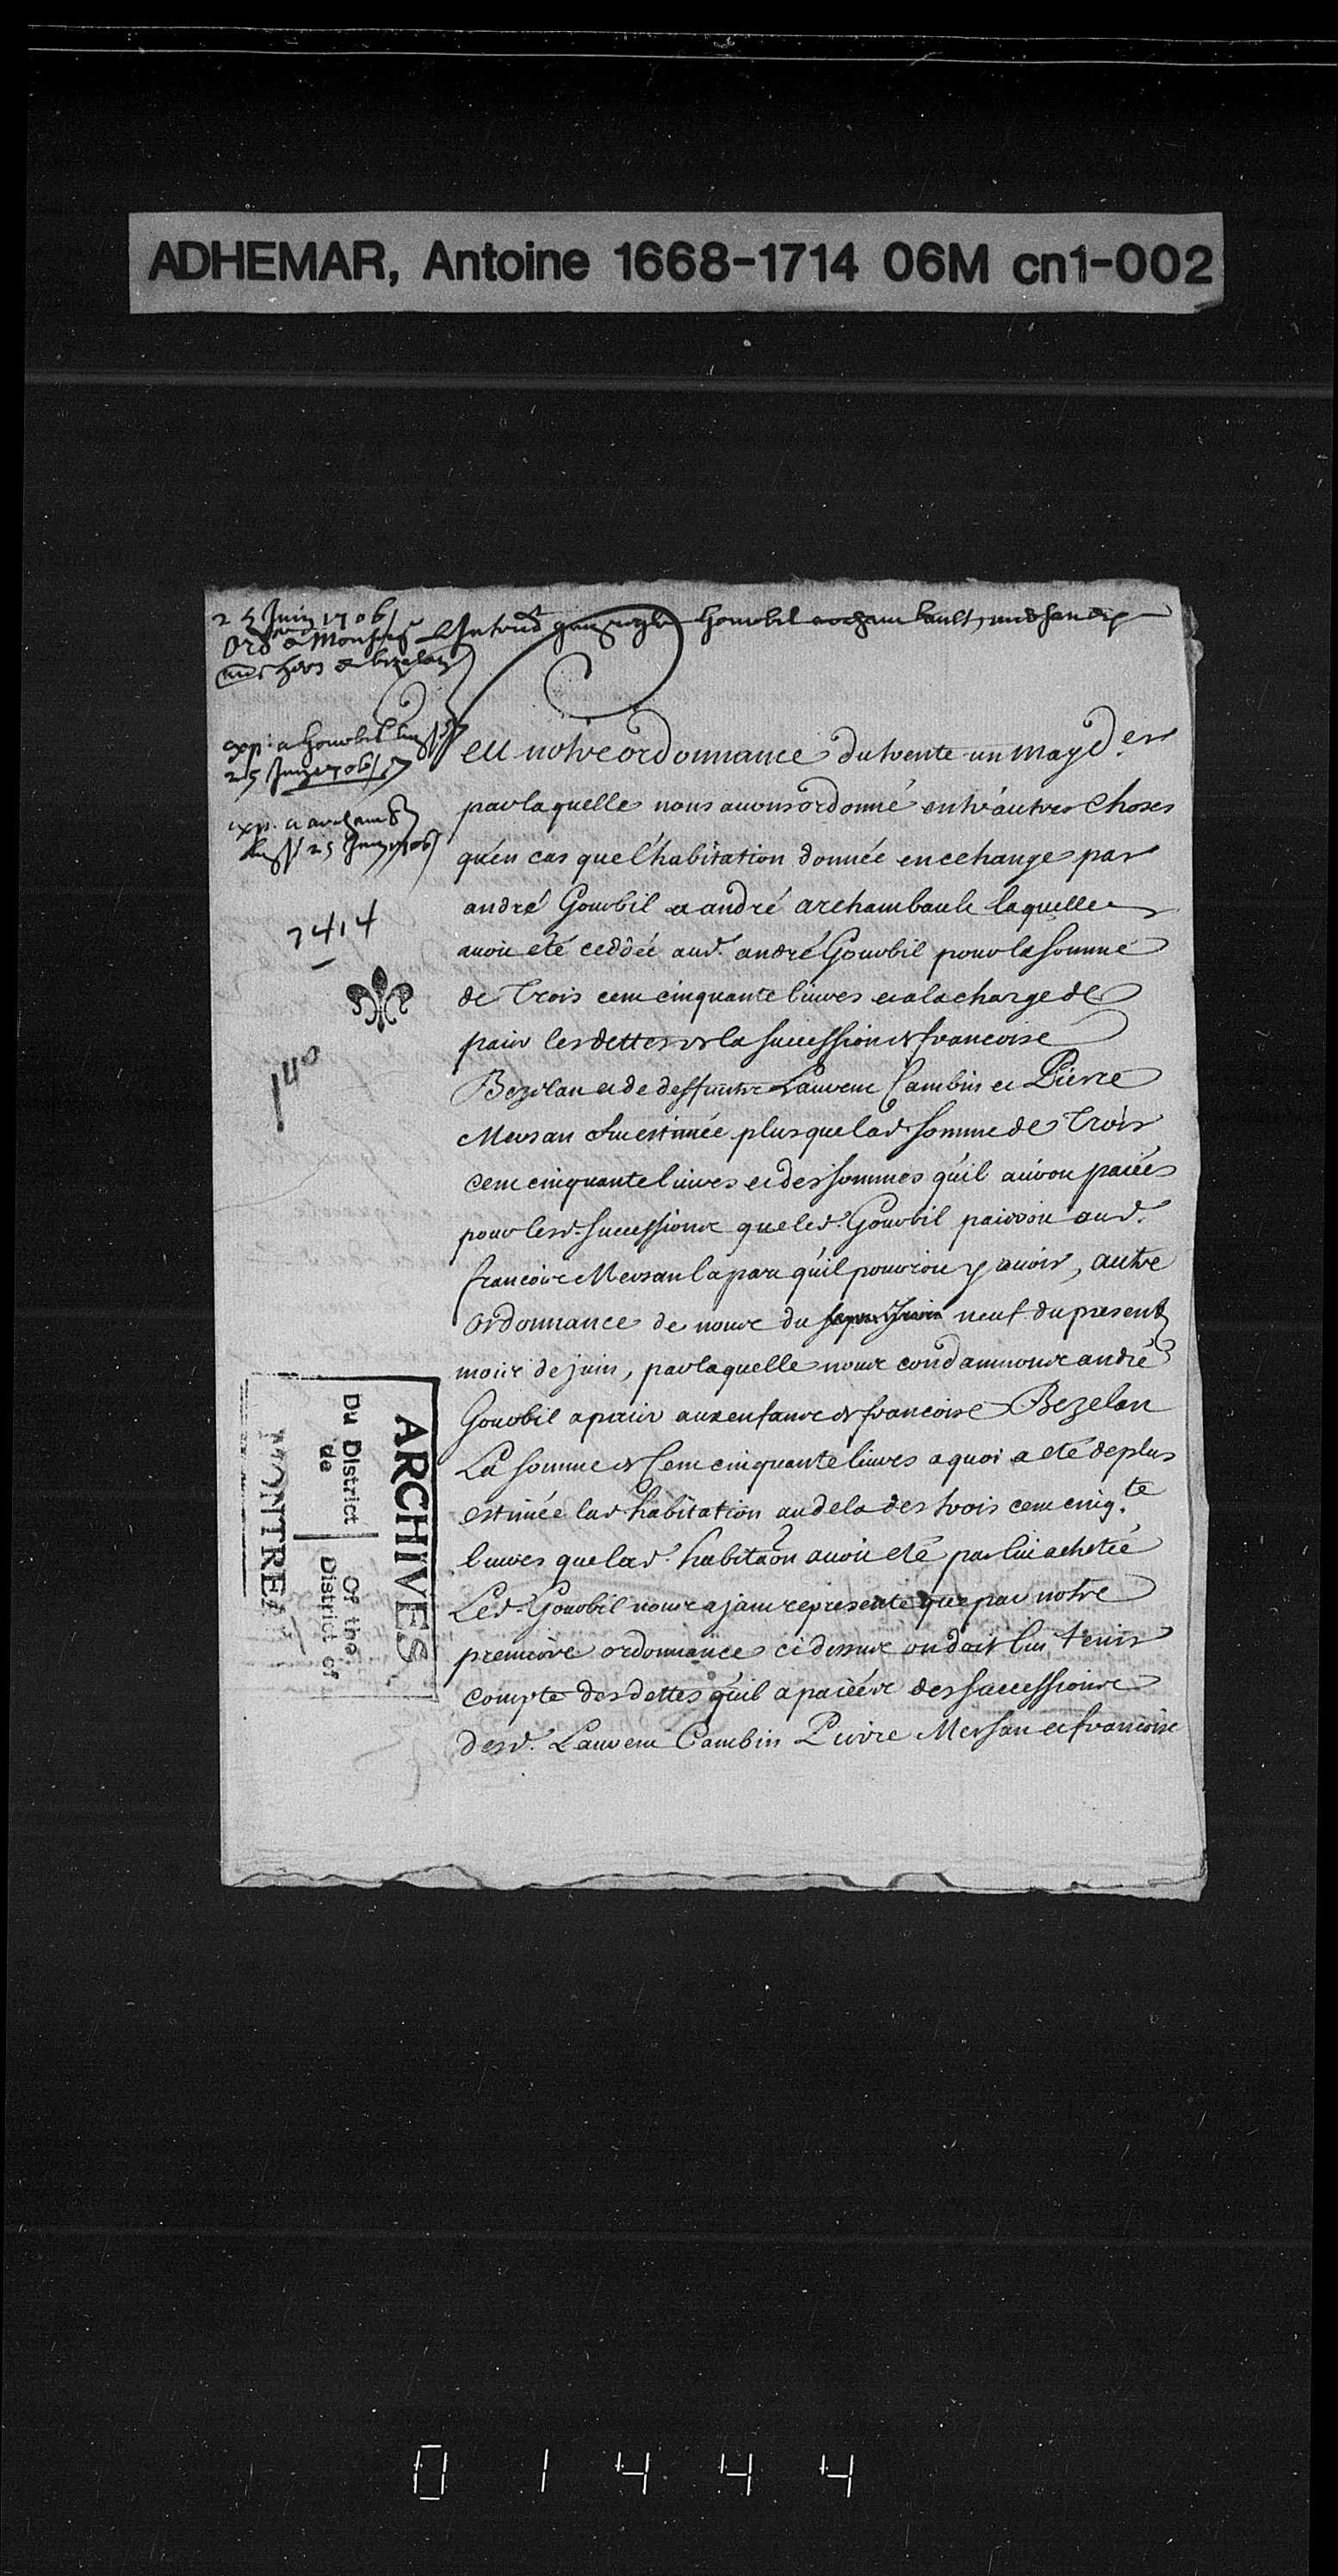 ADHEMAR, Antoine 1668-1714 06M cn1-002
25 Juin 1706
Ordce de Monsieur
exp: a Gourbil
25 Juin 1706
exp. a archamb
25 Juin 1706
7414
Veu notre ordonnance du trente un may d.er
par laquelle nous auons ordonné entr'autres choses
qu'en cas que l'habitation donnée en echange par
andré Gourbil a andré archambault laquelle
auoit eté ceddée aud. andré Gourbil pour la somme
de Trois cent cinquante liures et a la charge de
paier les dettes de la succession de francoise
Bezelan et de deffunts Laurent Cambin et Pierre
Mersan fut estimée plus que lad. somme de Trois
cent cinquante liures et des sommes qu'il auroit paiées
pour lesd. successions que led. Gourbil paieroit aud.
francois Mersan la part qu'il pouroit y auoir, autre
ordonnance de nous du neuf du present
mois de juin, par laquelle nous condamnons andré
Gourbil a paier aux enfans de francoise Bezelan
La somme de Cent cinquante liures a quoi a eté de plus
estimée lad. habitation au dela des trois cent cinq.te
liures que lad. habitaon auoit eté par lui achetée
Led. Gourbil nous aiant representé que par notre
premiere ordonnance ci dessus on doit lui tenir
compte des dettes qu'il a paiées des successions
desd. Laurent Cambin Pierre Mersan et francoise
ARCHIVES
Du District Of the
de District of
MONTREAL
0 1 4 4 4